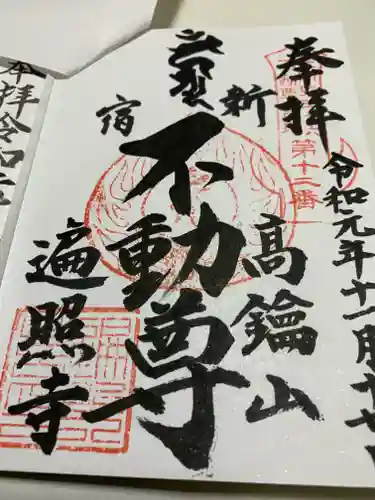 奉拝
第十二番
令和元年十一月十
新宿
高鑰山
不動尊
遍照寺
奉拝
令和